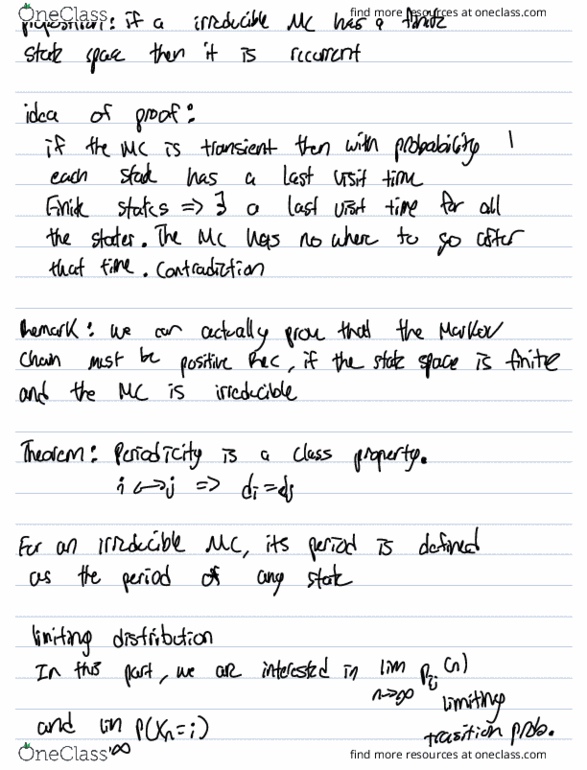 OneClass find more resources at oneclass.com
proposition: if a irreducible MC has a finite
state space then it is recurrent
idea of proof:
if the MC is transient then with probability 1
each state has a last visit time
Finite states => ∃ a last visit time for all
the states. The MC has no where to go after
that time. Contradiction
Remark: we can actually prove that the Markov
Chain must be positive Rec, if the state space is finite
and the MC is irreducible
Theorem: Periodicity is a class property.
i <-> j => di = dj
For an irreducible MC, its period is defined
as the period of any state
limiting distribution
In this part, we are interested in lim Pij(n)
n->∞ limiting
and lim P(Xn=i) transition prob.
∞
OneClass find more resources at oneclass.com